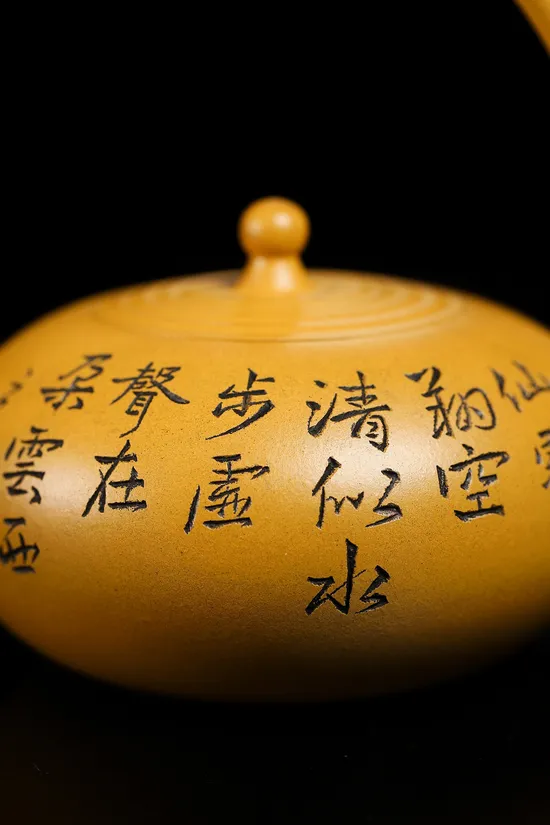 仙
翔空
清似水
步虛
聲在
朵
雲西